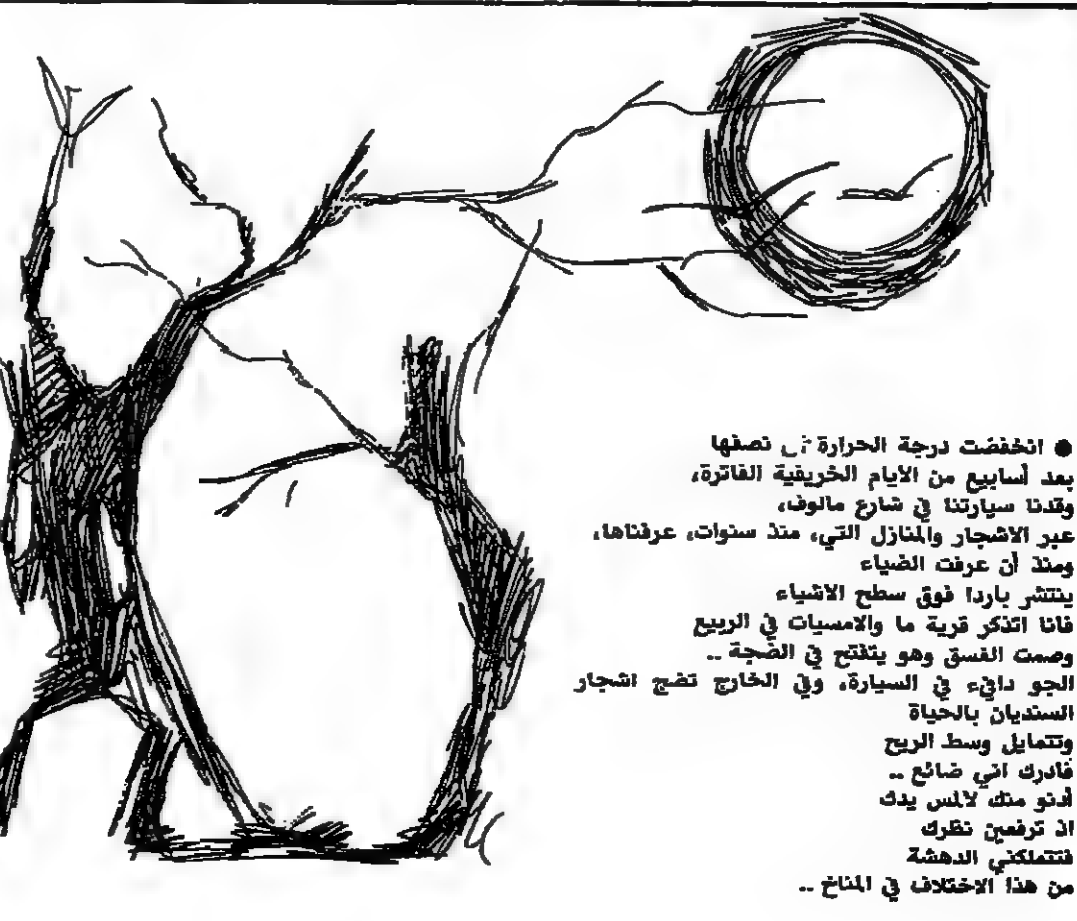 ● انخفضت درجة الحرارة نصفها
بعد أسابيع من الايام الخريفية الفاترة،
وقدنا سيارتنا في شارع مالوف،
عبر الاشجار والمنازل التي، منذ سنوات، عرفناها،
ومنذ أن عرفت الضياء
ينتشر باردا فوق سطح الاشياء
فانا اتذكر قرية ما والامسيات في الربيع
وصمت الغسق وهو يتفتح في الضجة ..
الجو دافيء في السيارة، وفي الخارج تضج اشجار
السنديان بالحياة
وتتمايل وسط الريح
فأدرك اني ضائع ..
أدنو منك لالمس يدك
اذ ترفعين نظرك
فتتملكني الدهشة
من هذا الاختلاف في المناخ ..